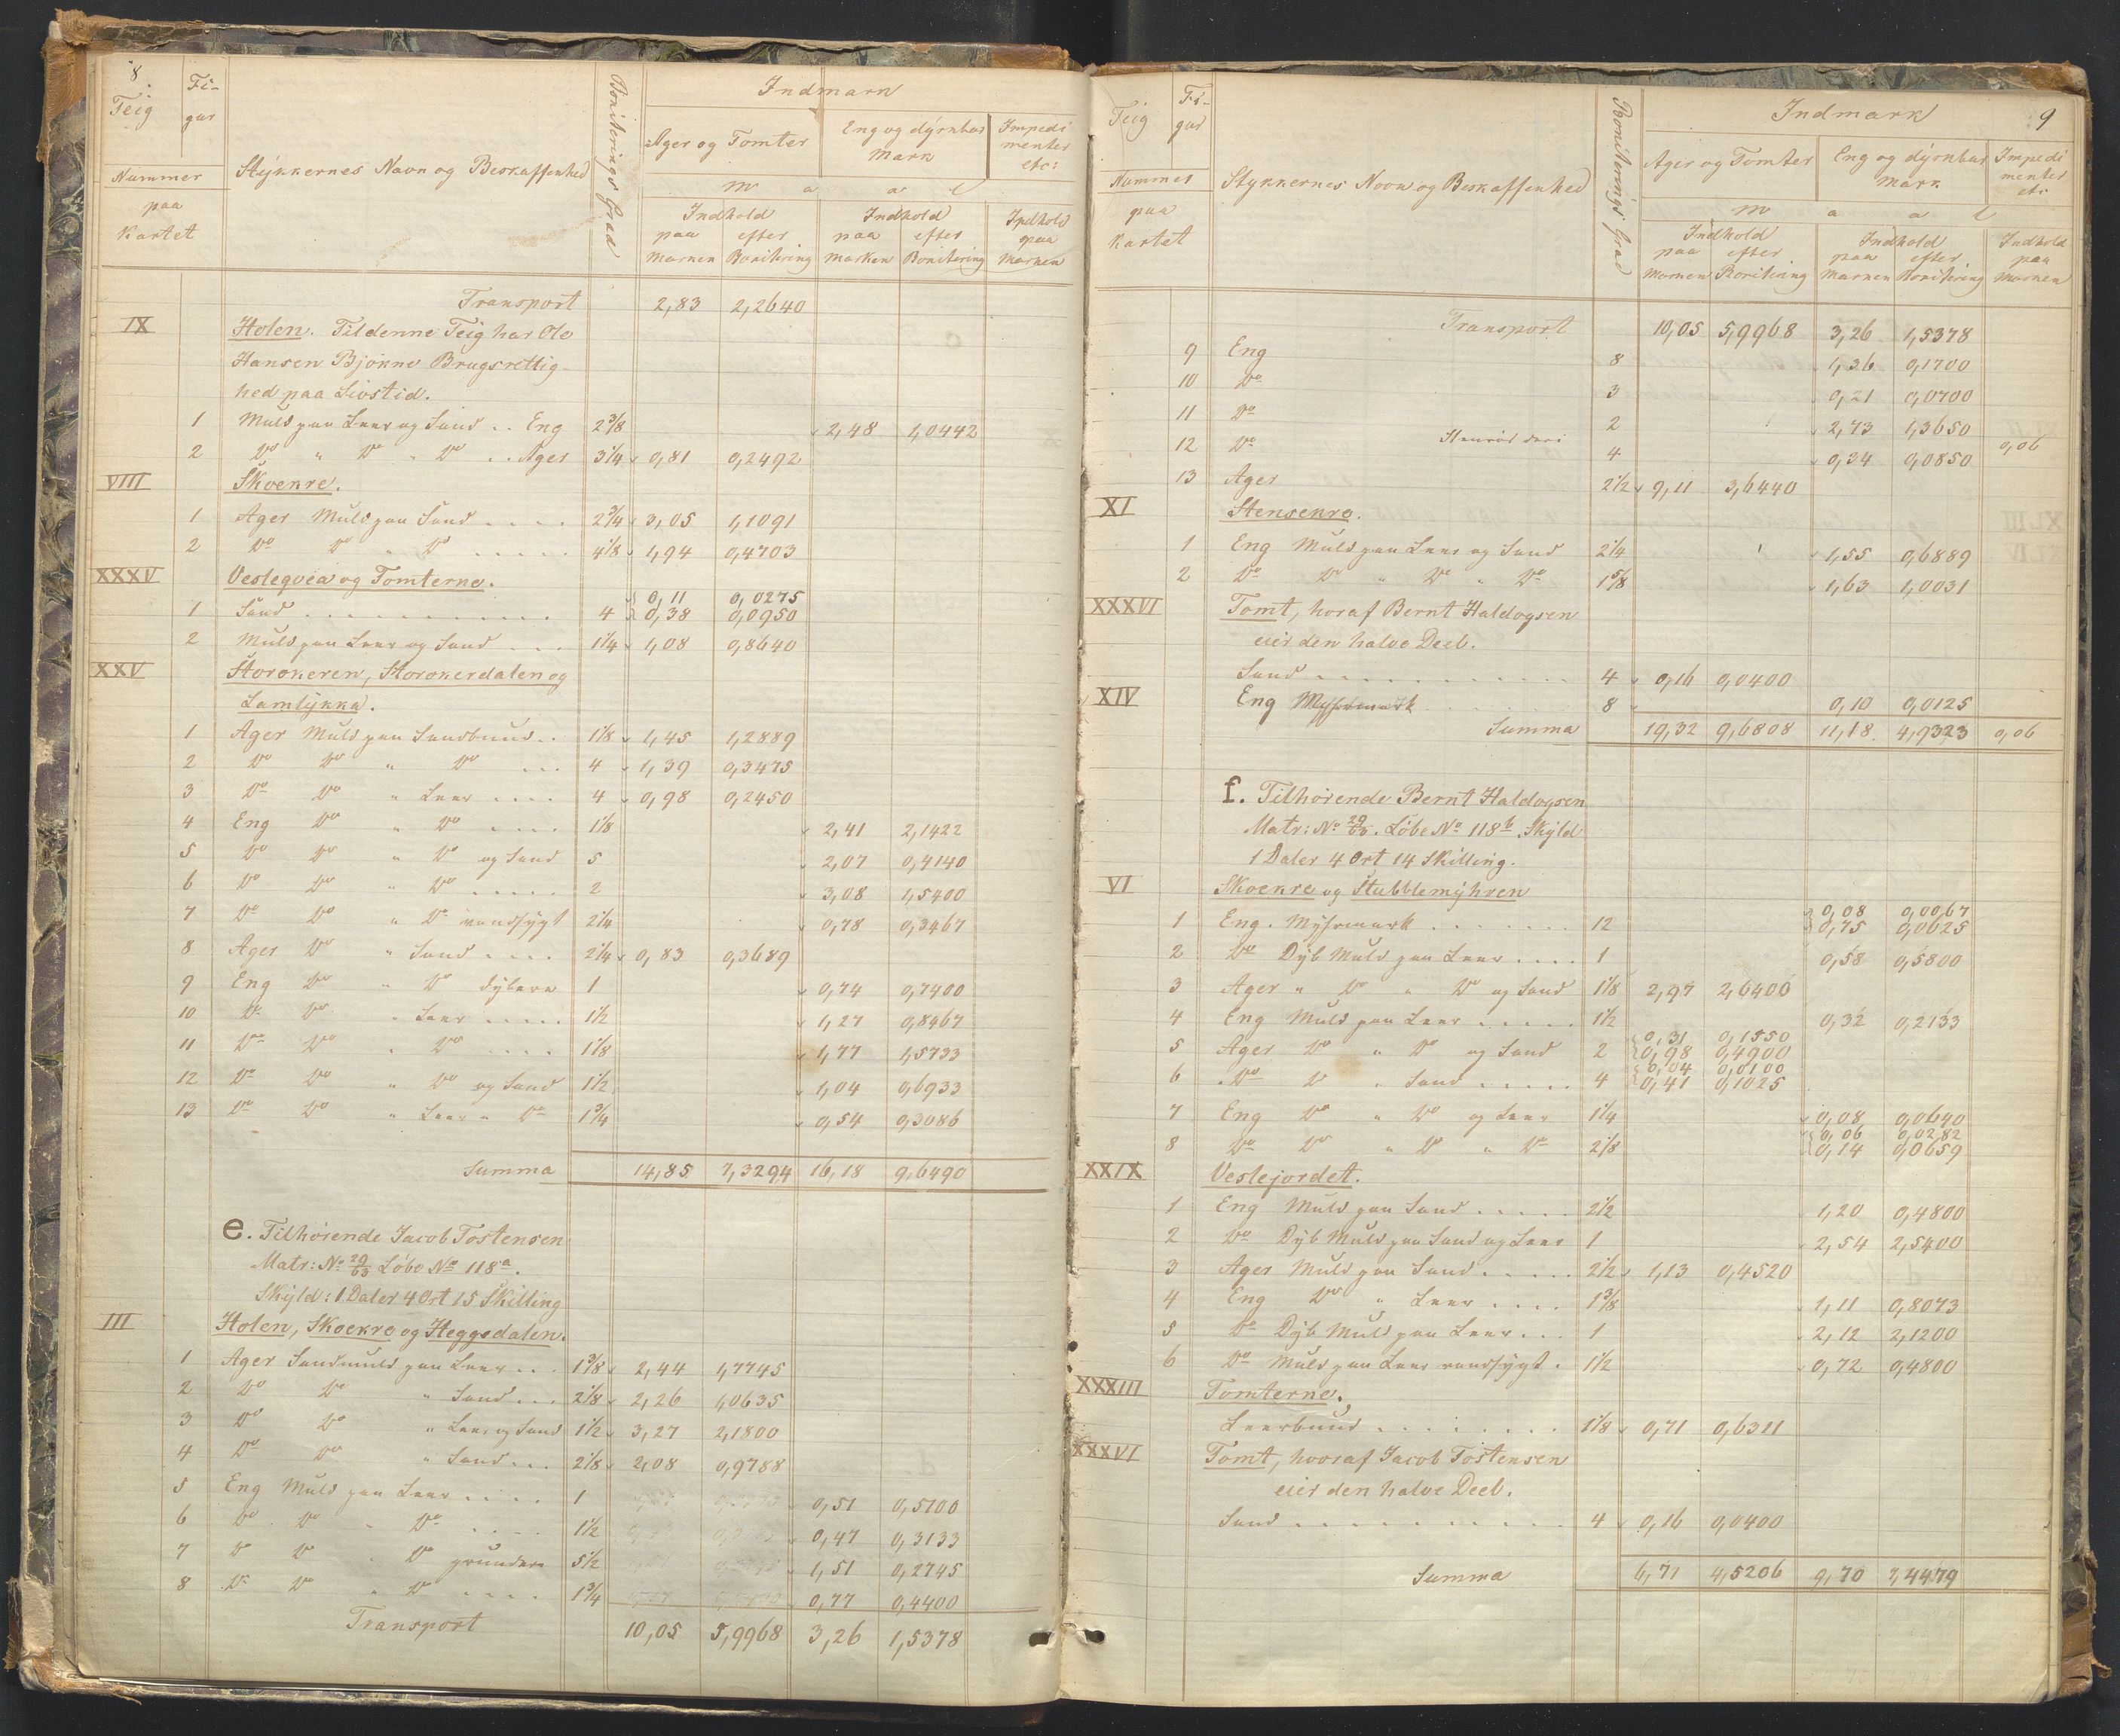 8
Teig
Fi-
gur
Nummer
paa
Kartet
Stykkernes Navn og Beskaffenhed
Boniterings Grad
Indmark
Ager og Tomter
Eng og dyrkbar
Mark
Impedi
menter
etc:
M a a l
Indhold
paa efter
Marken Bonitering
Indhold
paa efter
Marken Bonitering
Indhold
paa
Marken
Transport 2,83 2,2640
IX Holen. Til denne Teig har Ole
Hansen Bjørne Brugsrettig-
hed paa Livstid.
1 Muld paa Leer og Sand .. Eng 2 3/8 2,48 1,0442
2 Do " Do " Do .. Ager 3 1/4 0,81 0,2492
VIII Skoekre.
1 Ager Muld paa Sand .... 2 3/4 3,05 1,1091
2 Do Do " Do ..... 4 1/8 1,94 0,4703
XXXV Veslegvea og Tomterne.
0,11 0,0275
1 Sand ........... 4 0,38 0,0950
2 Muld paa Leer og Sand ... 1 1/4 1,08 0,8640
XXV Storokeren, Storokerdalen og
Lamlykka.
1 Ager Muld paa Sandbund .. 1 1/8 1,45 1,2889
2 Do Do " Do ... 4 1,39 0,3475
3 Do Do " Leer .... 4 0,98 0,2450
4 Eng Do " Do .... 1 1/8 2,41 2,1422
5 Do Do " Do og Sand 5 2,07 0,4140
6 Do Do " Do ..... 2 3,08 1,5400
7 Do Do " Do vandsygt 2 1/4 0,78 0,3467
8 Ager Do " Sand .... 2 1/4 0,83 0,3689
9 Eng Do " Do dybere 1 0,74 0,7400
10 Do Do " Leer ..... 1 1/2 1,27 0,8467
11 Do Do " Do .... 1 1/8 1,77 1,5733
12 Do Do " Do og Sand 1 1/2 1,04 0,6933
13 Do Do " Leer " Do 1 3/4 0,54 0,3086
Summa 14,85 7,3294 16,18 9,6490
e. Tilhørende Jacob Tostensen
Matr: No 29/63 Løbe No 118a.
Skyld: 1 Daler 4 Ort 15 Skilling
III Holen, Skoekre og Heggsdalen.
1 Ager Sandmuld paa Leer ... 1 3/8 2,44 1,7745
2 Do Do " Sand ... 2 1/8 2,26 1,0635
3 Do Do " Leer og Sand 1 1/2 3,27 2,1800
4 Do Do " Sand ... 2 1/8 2,08 0,9788
5 Eng Muld paa Leer .... 1 0,51 0,5100
6 Do Do " Do .... 1 1/2 0,47 0,3133
7 Do Do " Do grundere 5 1/2 1,51 0,2745
8 Do Do " Do .... 1 3/4 0,77 0,4400
Transport 10,05 5,9968 3,26 1,5378
9
Teig
Fi-
gur
Nummer
paa
Kartet
Stykkernes Navn og Beskaffenhed
Boniterings Grad
Indmark
Ager og Tomter
Eng og dyrkbar
Mark
Impedi
menter
etc
M a a l
Indhold
paa efter
Marken Bonitering
Indhold
paa efter
Marken Bonitering
Indhold
paa
Marken
Transport 10,05 5,9968 3,26 1,5378
9 Eng 8 1,36 0,1700
10 Do 3 0,21 0,0700
11 Do 2 2,73 1,3650
12 Do 4 0,34 0,0850 0,06
13 Ager 2 1/2 9,11 3,6440
XI Stensekre.
1 Eng Muld paa Leer og Sand 2 1/4 1,55 0,6889
2 Do Do " Do " Do 1 5/8 1,63 1,0031
XXXVI Tomt, horaf Bernt Haldogsen
eier den halve Deel.
Sand ........... 4 0,16 0,0400
XIV Eng Myrmark ...... 8 0,10 0,0125
Summa 19,32 9,6808 11,18 4,9323 0,06
f. Tilhørende Bernt Haldogsen
Matr: No 29/63. Løbe No 118b. Skyld
1 Daler 4 Ort 14 Skilling.
VI Skoekre og Stubblemyhren
0,08 0,0067
1 Eng. Myrmark ....... 12 0,75 0,0625
2 Do Dyb Muld paa Leer .... 1 0,58 0,5800
3 Ager " Do " Do og Sand 1 1/8 2,97 2,6400
4 Eng Muld paa Leer ..... 1 1/2 0,32 0,2133
0,31 0,1550
5 Ager Do " Do og Sand 2 0,98 0,4900
0,04 0,0100
6 Do Do " Sand ..... 4 0,41 0,1025
7 Eng Do " Do og Leer 1 1/4 0,08 0,0640
0,06 0,0282
8 Do Do " Do " Do 2 1/8 0,14 0,0659
XXIX Veslejordet.
1 Eng Muld paa Sand ..... 2 1/2 1,20 0,4800
2 Do Dyb Muld paa Sand og Leer 1 2,54 2,5400
3 Ager Muld paa Sand ..... 2 1/2 1,13 0,4520
4 Eng Do " Leer .... 1 3/8 1,11 0,8073
5 Do Dyb Muld paa Leer ... 1 2,12 2,1200
6 Do Muld paa Leer vandsygt . 1 1/2 0,72 0,4800
XXXIII Tomterne.
Leerbund ........ 1 1/8 0,71 0,6311
XXXVI Tomt, hvoraf Jacob Tostensen
eier den halve Deel.
Sand .......... 4 0,16 0,0400
Summa 6,71 4,5206 9,70 7,4479